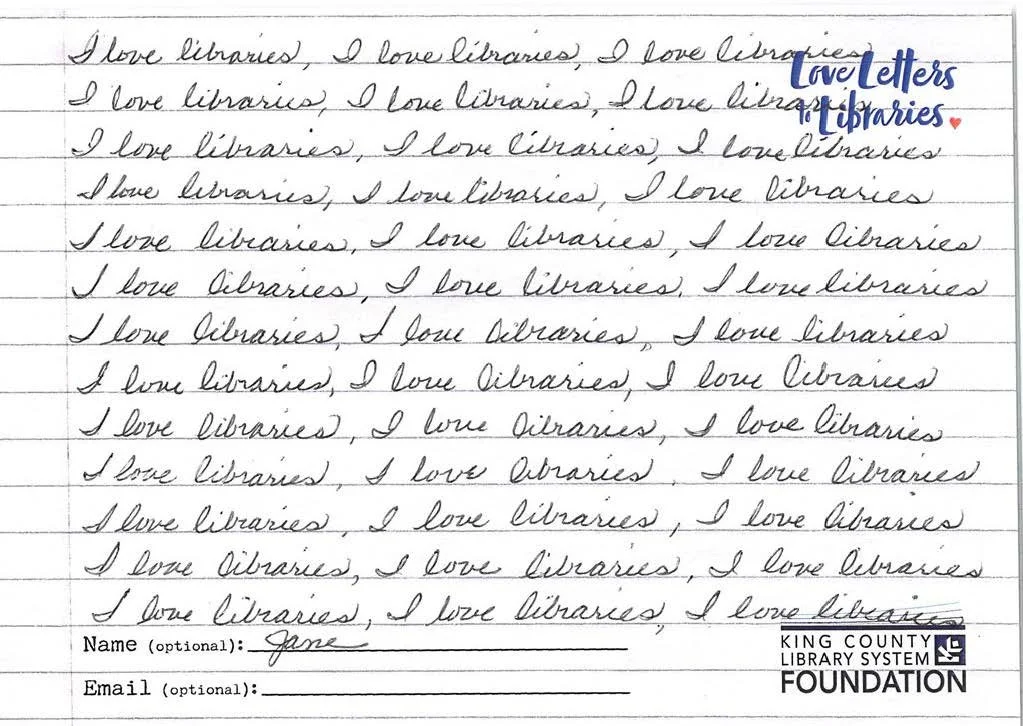 I love libraries, I love libraries, I love libraries
Love Letters
I love libraries, I love libraries, I love libraries
To Libraries
I love libraries, I love libraries, I love libraries
I love libraries, I love libraries, I love libraries
I love libraries, I love libraries, I love libraries
I love libraries, I love libraries, I love libraries
I love libraries, I love libraries, I love libraries
I love libraries, I love libraries, I love libraries
I love libraries, I love libraries, I love libraries
I love libraries, I love libraries, I love libraries
I love libraries, I love libraries, I love libraries
I love libraries, I love libraries, I love libraries
I love libraries, I love libraries, I love libraries
Name (optional): Jane
KING COUNTY
LIBRARY SYSTEM
FOUNDATION
Email (optional):